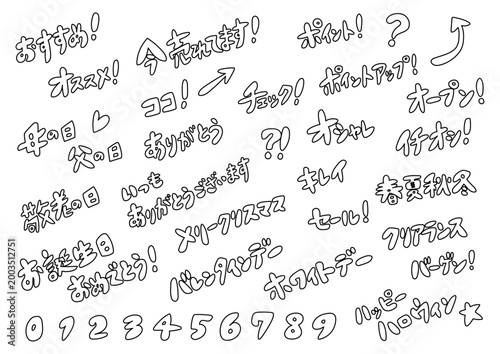 おすすめ!
オススメ!
今売れてます!
ココ!
ポイント!
?
ポイントアップ!
チェック!
オープン!
母の日
父の日
ありがとう
?!
オシャレ
イチオシ!
敬老の日
いつも
ありがとうございます
キレイ
春夏秋冬
メリークリスマス
セール!
クリアランス
お誕生日
おめでとう!
バレンタインデー
ホワイトデー
バーゲン!
ハッピー
ハロウィン
0 1 2 3 4 5 6 7 8 9
Adobe Stock | #2003512751